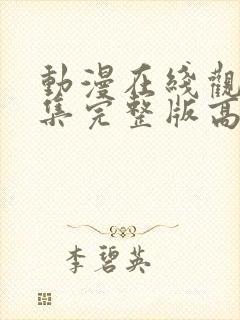 動漫在綫觀
集完整版高
李碧英